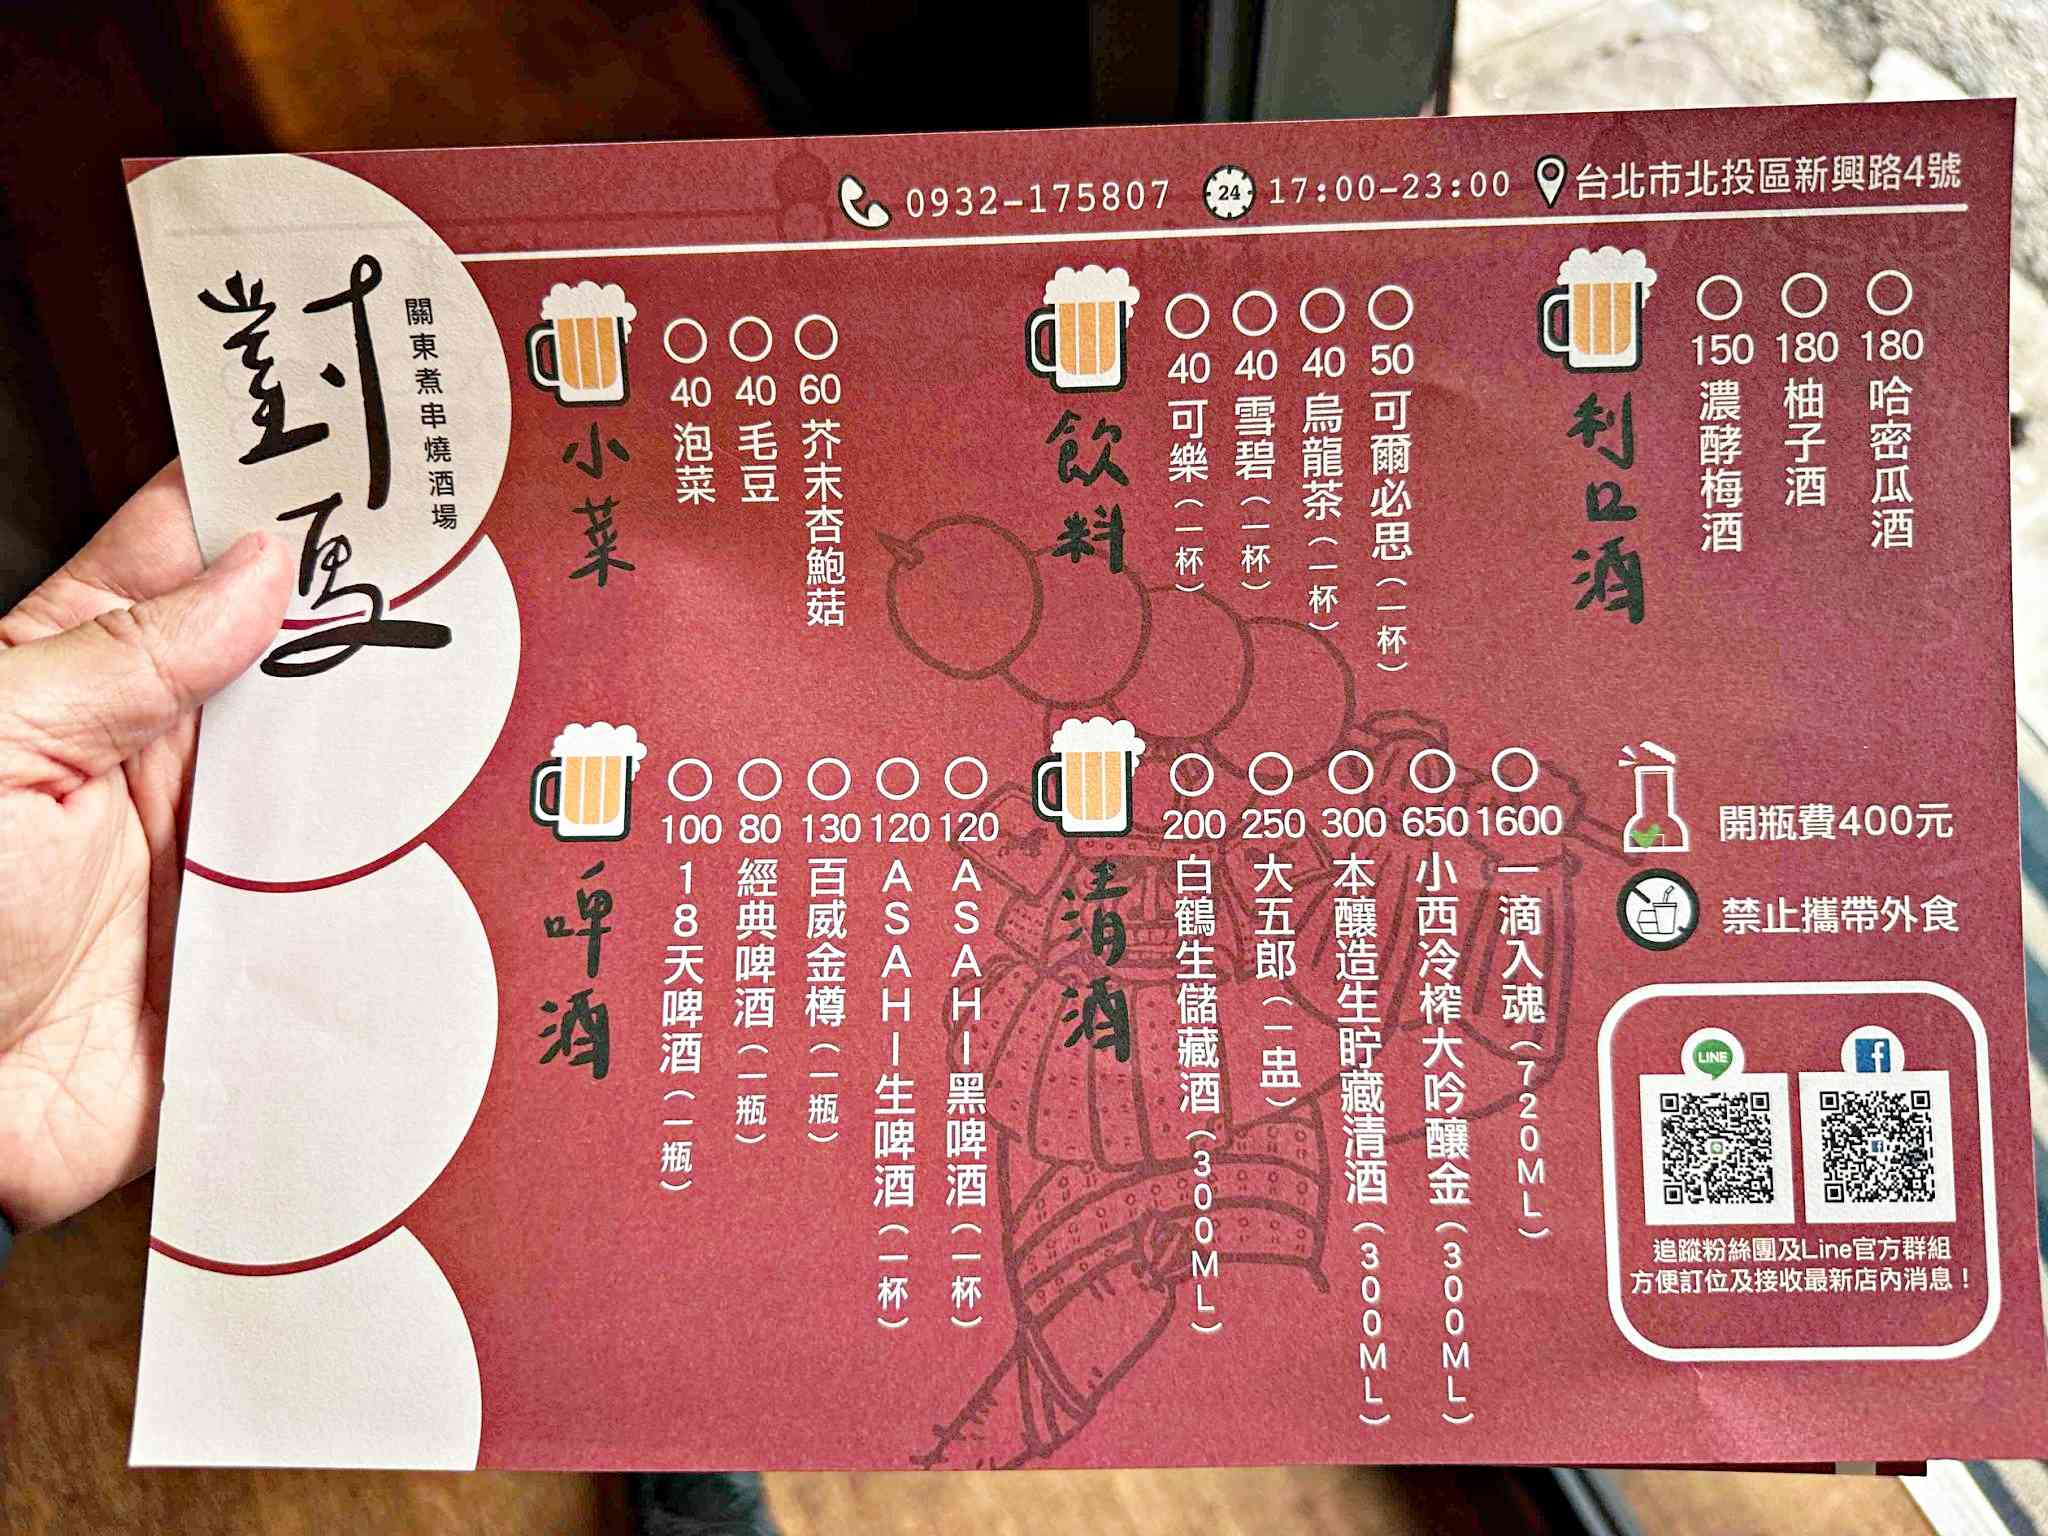 對夏
關東煮串燒酒場
0932-175807
24
17:00-23:00
台北市北投區新興路4號
小菜
40 泡菜
40 毛豆
60 芥末杏鮑菇
飲料
40 可樂(一杯)
40 雪碧(一杯)
40 烏龍茶(一杯)
50 可爾必思(一杯)
利口酒
150 濃酵梅酒
180 柚子酒
180 哈密瓜酒
啤酒
100 18天啤酒(一瓶)
80 經典啤酒(一瓶)
130 百威金樽(一瓶)
120 ASAHI生啤酒(一杯)
120 ASAHI黑啤酒(一杯)
清酒
200 白鶴生儲藏酒(300ML)
250 大五郎(一盅)
300 本釀造生貯藏清酒(300ML)
650 小西冷榨大吟釀金(300ML)
1600 一滴入魂(720ML)
開瓶費400元
禁止攜帶外食
LINE
f
追蹤粉絲團及Line官方群組
方便訂位及接收最新店內消息!